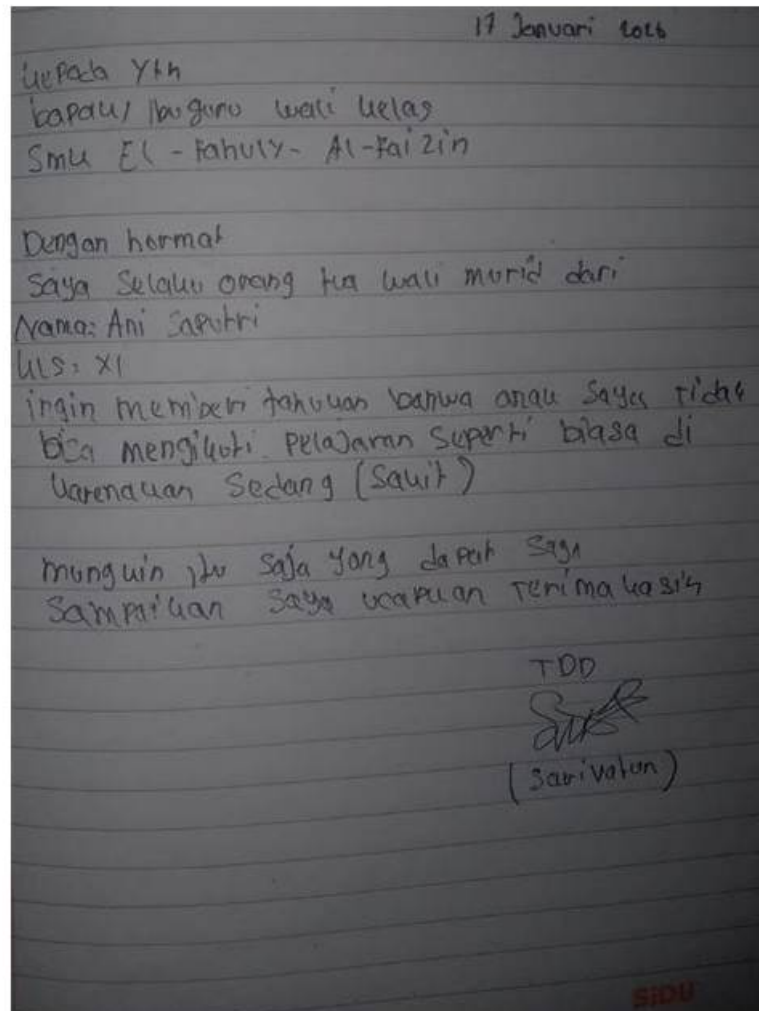 17 Januari 2026
kepada Yth
bapak/ ibu guru wali kelas
Smk El - Fahuly - Al-Faizin
Dengan hormat
Saya Selaku orang tua wali murid dari
Nama: Ani Saputri
kls: XI
ingin memberi tahukan bahwa anak Saya tidak
bica mengikuti Pelajaran Superti biasa di
karenakan Sedang (Sakit)
mungkin itu Saja yang dapat Saya
Sampaikan Saya ucapkan Terima kasih
TDD
SIDU